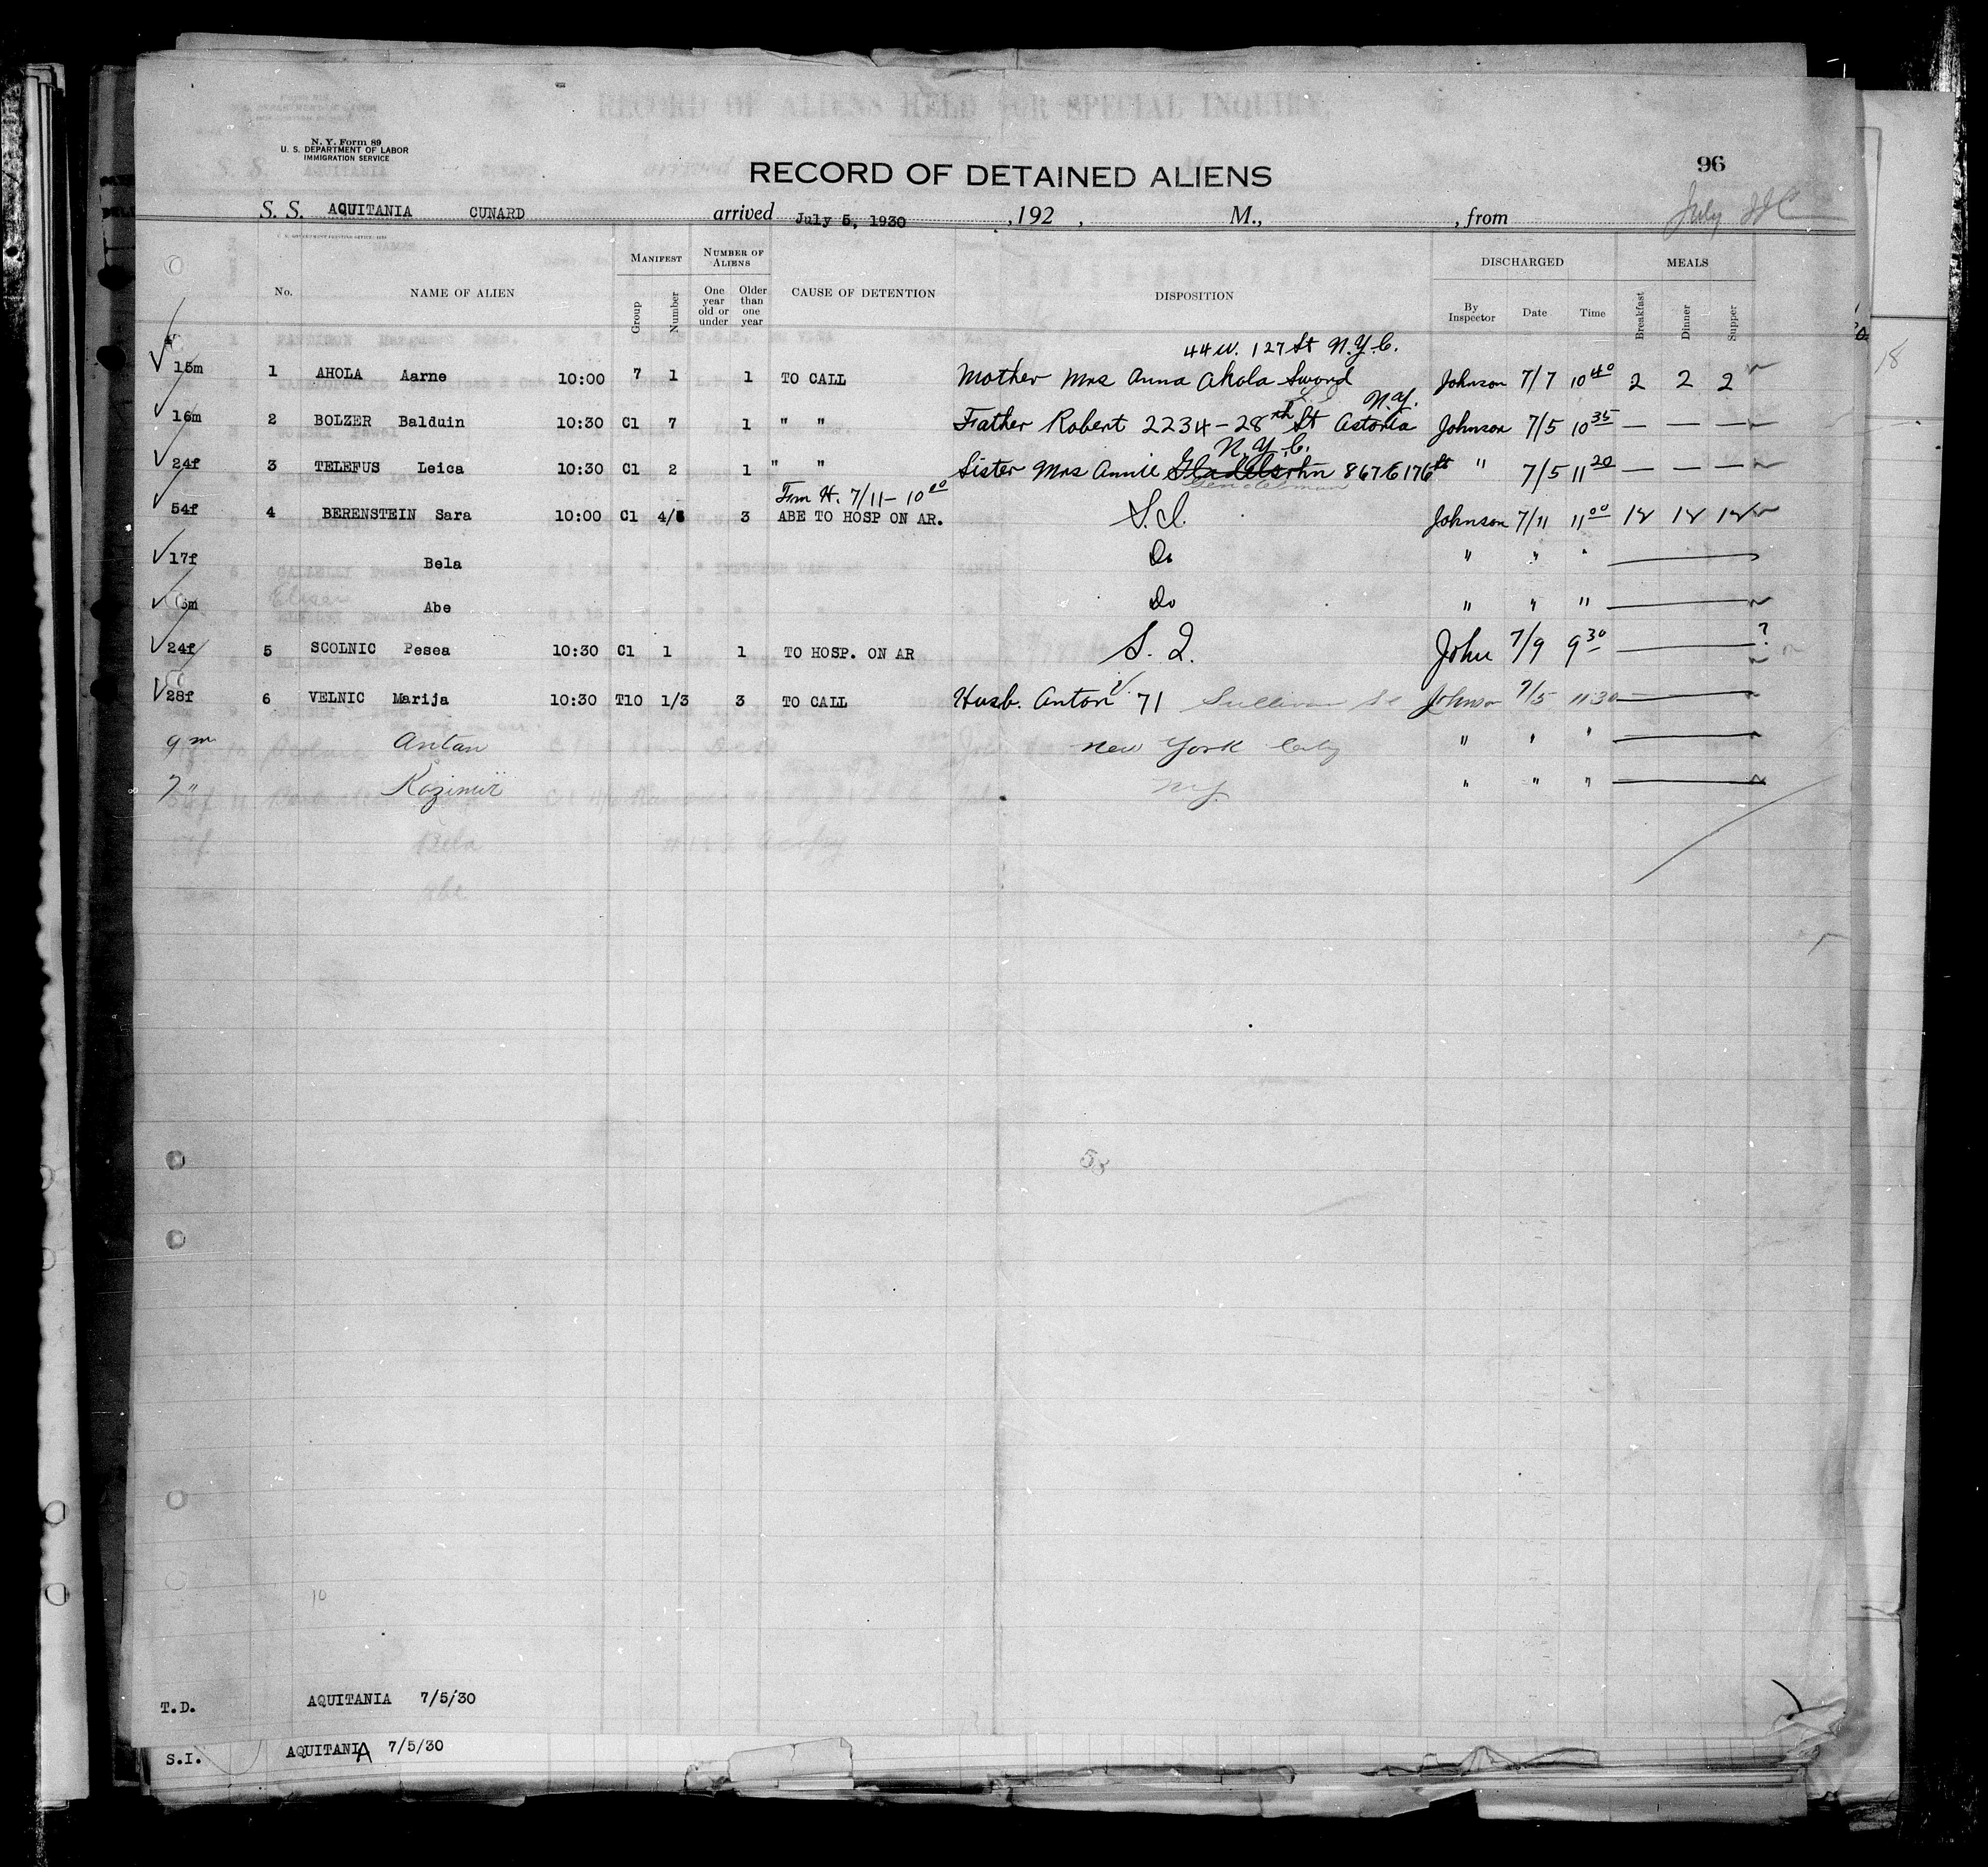 N. Y. Form 89
U. S. DEPARTMENT OF LABOR
IMMIGRATION SERVICE
RECORD OF DETAINED ALIENS
96
S. S. AQUITANIA CUNARD arrived July 5, 1930 , 192 , M., , from July
No. NAME OF ALIEN MANIFEST Group Number NUMBER OF ALIENS One year old or under Older than one year CAUSE OF DETENTION DISPOSITION DISCHARGED By Inspector Date Time MEALS Breakfast Dinner Supper
44 W. 127 St N.Y.C.
15m 1 AHOLA Aarne 10:00 7 1 1 TO CALL Mother Mrs Anna Ahola Sword Johnson 7/7 10 40 2 2 2
N.Y.
16m 2 BOLZER Balduin 10:30 C1 7 1 " " Father Robert 2234 - 28th St Astoria Johnson 7/5 10 35 — — —
N.Y.C.
24f 3 TELEFUS Leica 10:30 C1 2 1 " " Sister Mrs Annie 867 E 176 St " 7/5 11 20 — — —
Gendelman
Frm H. 7/11 - 10 00
54f 4 BERENSTEIN Sara 10:00 C1 4/6 3 ABE TO HOSP ON AR. S.I. Johnson 7/11 11 00 18 18 18
17f Bela Do " " "
Abe Do " " "
24f 5 SCOLNIC Pesea 10:30 C1 1 1 TO HOSP. ON AR S. I. John 7/9 9 30 ?
28f 6 VELNIC Marija 10:30 T10 1/3 3 TO CALL Husb. Anton V. 71 Sullivan St Johnson 7/5 11 30
9m Antan New York City " " "
7" Kazimir N.Y. " " "
58
10
T.D. AQUITANIA 7/5/30
S.I. AQUITANIA 7/5/30
18